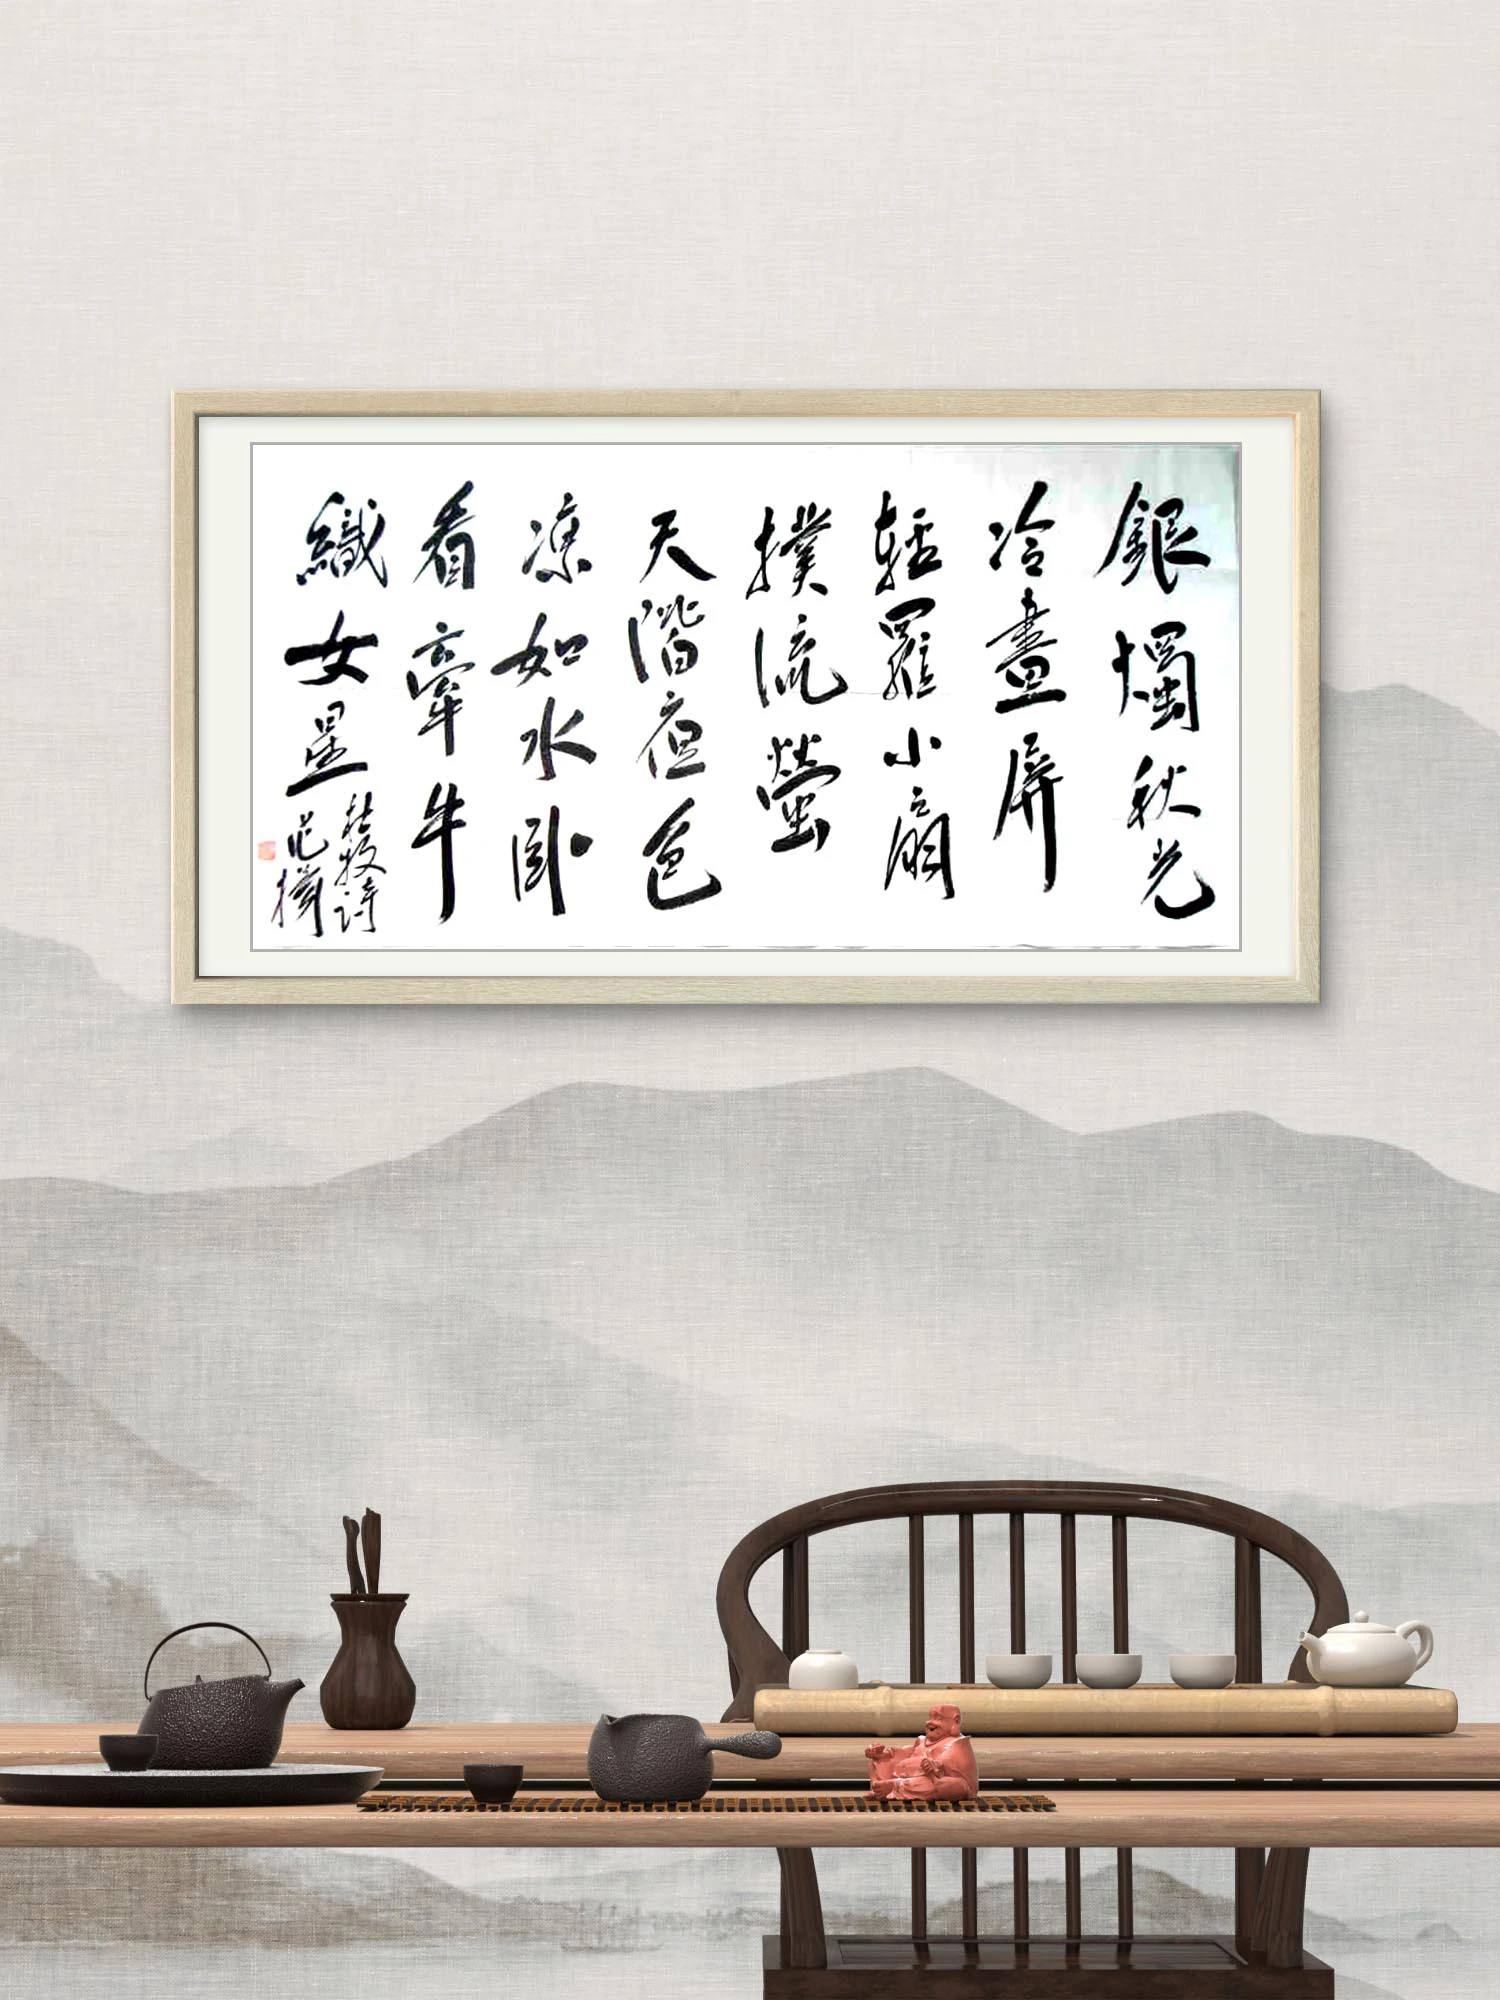 銀燭秋光
冷畫屏
輕羅小扇
撲流螢
天階夜色
涼如水卧
看牽牛
織女星
杜牧诗